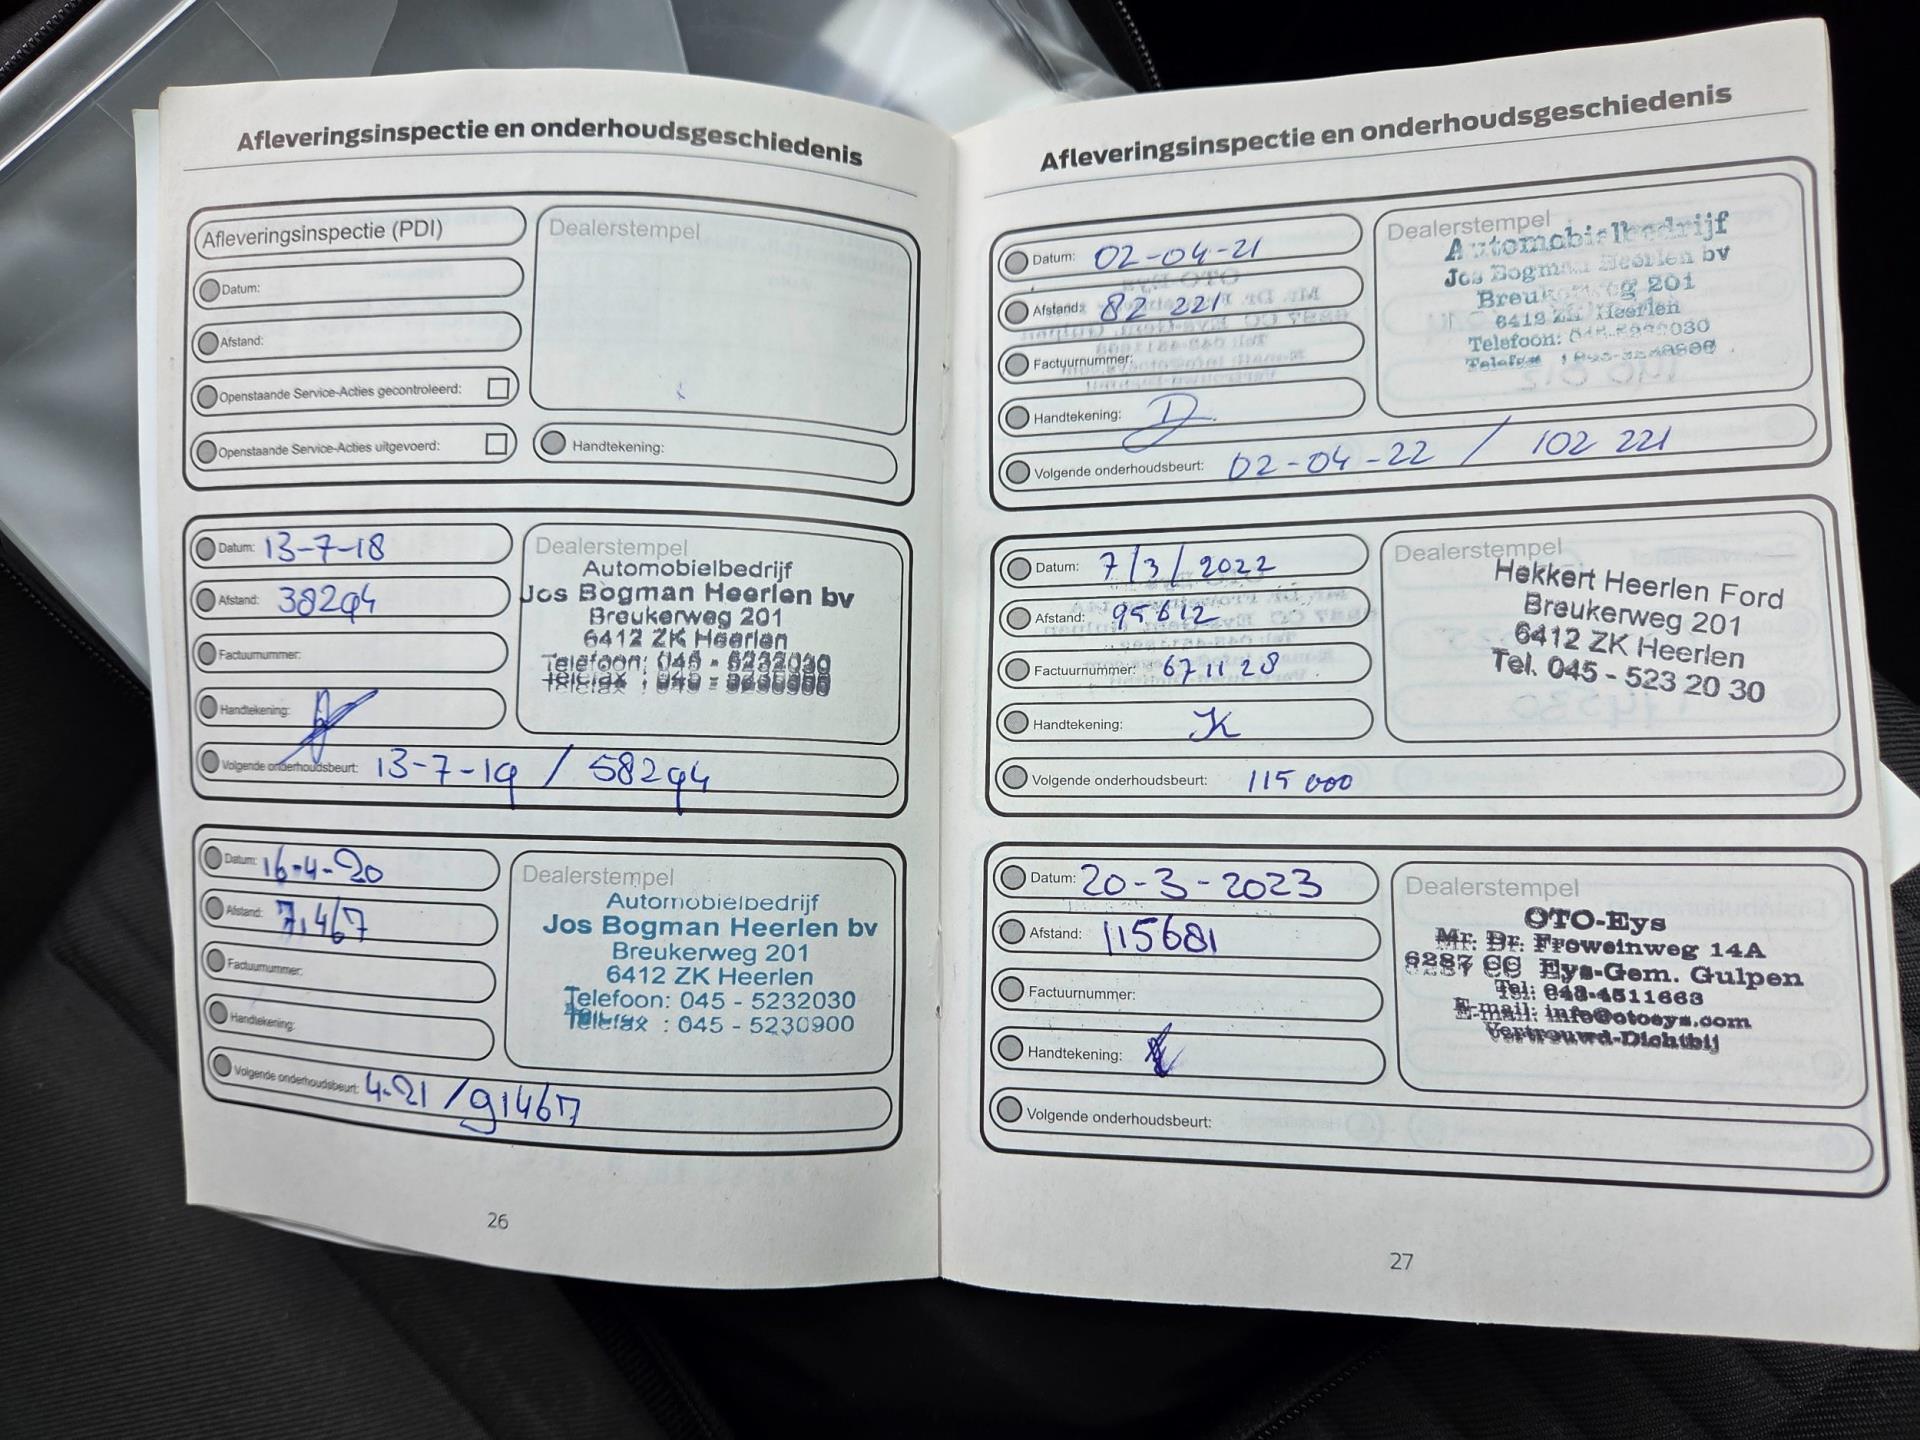 Afleveringsinspectie en onderhoudsgeschiedenis
Afleveringsinspectie (PDI)
Datum:
Afstand:
Openstaande Service-Acties gecontroleerd:
Openstaande Service-Acties uitgevoerd:
Dealerstempel
Handtekening:
Datum: 13-7-18
Afstand: 38294
Factuurnummer:
Handtekening:
Volgende onderhoudsbeurt: 13-7-19 / 58294
Dealerstempel
Automobielbedrijf
Jos Bogman Heerlen bv
Breukerweg 201
6412 ZK Heerlen
Telefoon: 045 - 5232030
Telefax : 045 - 5230900
Datum: 16-4-20
Afstand: 71467
Factuurnummer:
Handtekening:
Volgende onderhoudsbeurt: 4-21 / 91467
Dealerstempel
Automobielbedrijf
Jos Bogman Heerlen bv
Breukerweg 201
6412 ZK Heerlen
Telefoon: 045 - 5232030
Telefax : 045 - 5230900
26
Afleveringsinspectie en onderhoudsgeschiedenis
Datum: 02-04-21
Afstand: 82 221
Factuurnummer:
Handtekening:
Volgende onderhoudsbeurt: 02-04-22 / 102 221
Dealerstempel
Automobielbedrijf
Jos Bogman Heerlen bv
Breukerweg 201
6412 ZK Heerlen
Telefoon: 045-5232030
Telefax :
Datum: 7/3/2022
Afstand: 95612
Factuurnummer: 671128
Handtekening: K
Volgende onderhoudsbeurt: 115 000
Dealerstempel
Hekkert Heerlen Ford
Breukerweg 201
6412 ZK Heerlen
Tel. 045 - 523 20 30
Datum: 20-3-2023
Afstand: 115681
Factuurnummer:
Handtekening:
Volgende onderhoudsbeurt:
Dealerstempel
OTO-Eys
Mr. Dr. Froweinweg 14A
6287 CC Eys-Gem. Gulpen
Tel: 043-4511663
E-mail: info@otoeys.com
Vertrouwd-Dichtbij
27